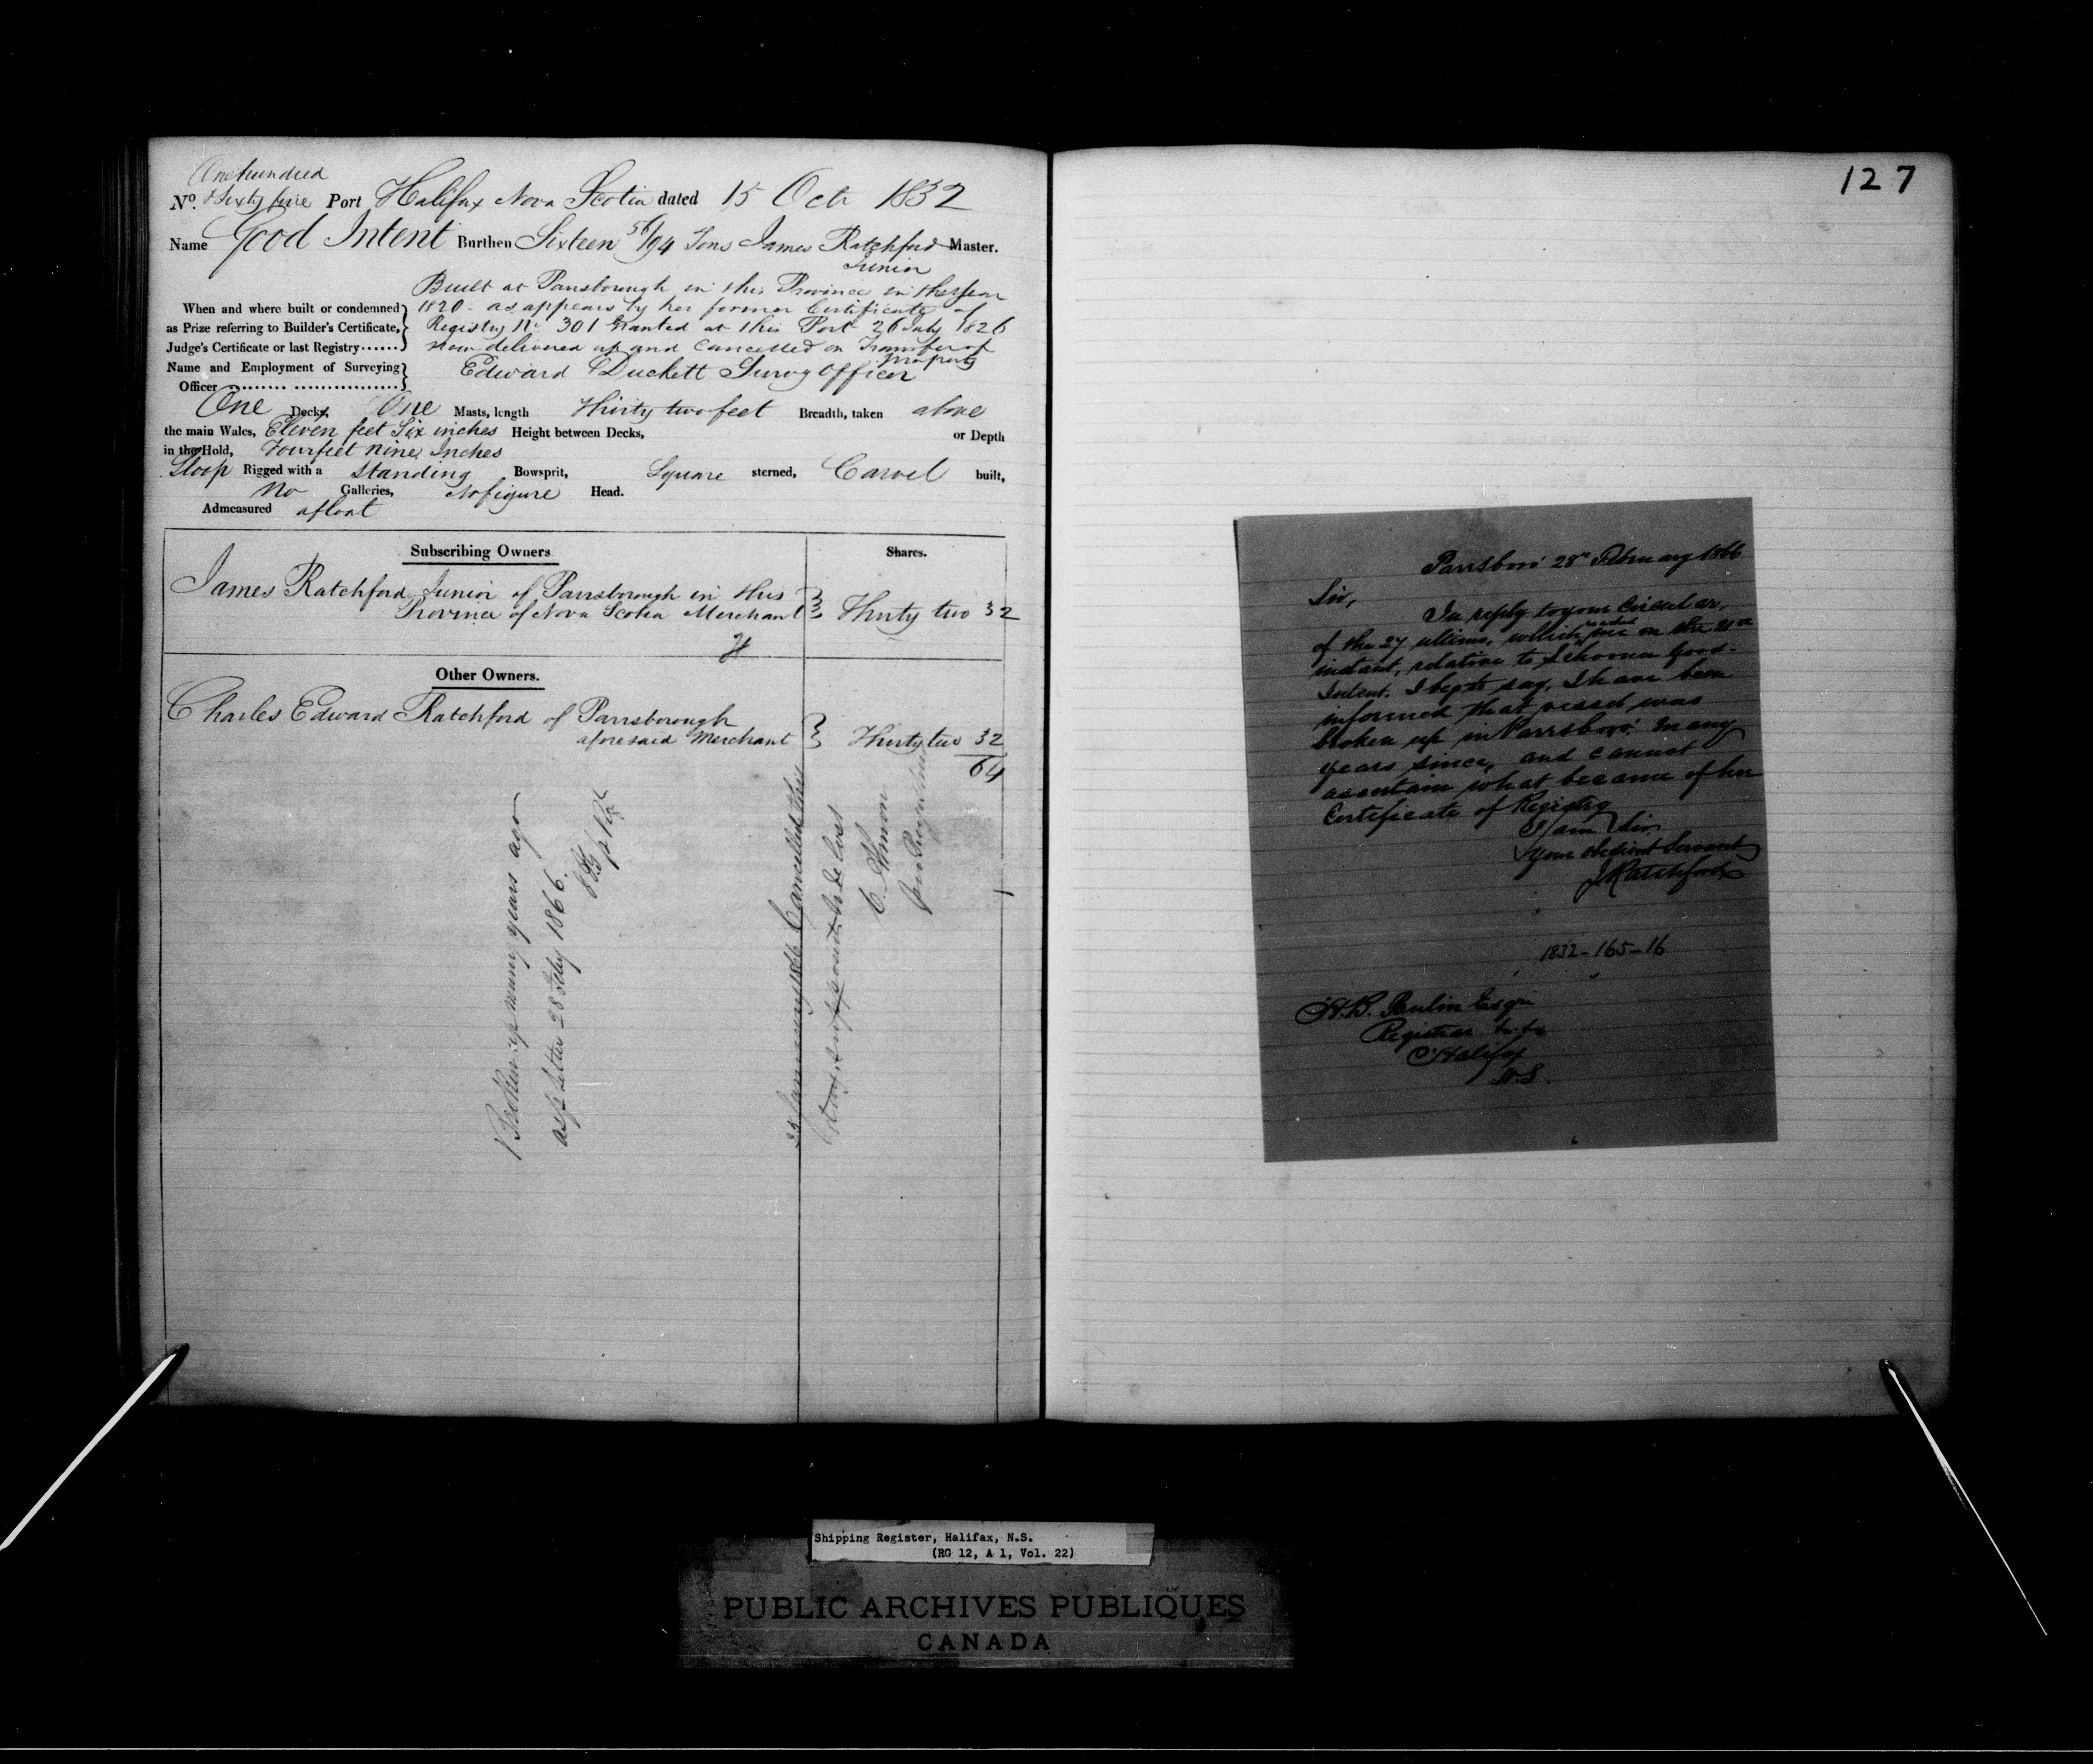 One hundred
No. & Sixty five Port Halifax Nova Scotia dated 15 Octr 1832
Name Good Intent Burthen Sixteen 56/94 Tons James Ratchford Master.
Junior
Built at Parrsborough in this Province in the year
When and where built or condemned 1820 - as appears by her former Certificate of
as Prize referring to Builder's Certificate, Registry No 301 Granted at this Port 26 July 1826
Judge's Certificate or last Registry...... now delivered up and Cancelled on Transfer of
property
Name and Employment of Surveying Edward Duckett Survg Officer
Officer
One Decks, One Masts, length Thirty two feet Breadth, taken above
the main Wales, Eleven feet Six inches Height between Decks, or Depth
in the Hold, Four feet Nine Inches
Sloop Rigged with a Standing Bowsprit, Square sterned, Carvel built,
No Galleries, No figure Head.
Admeasured afloat
Subscribing Owners Shares.
James Ratchford Junior of Parrsborough in this
Province of Nova Scotia Merchant Thirty two 32
Other Owners.
Charles Edward Ratchford of Parrsborough
aforesaid Merchant Thirty two 32
64
Broken up many years ago
as pr letter 28 Feby 1866.
23 January 1866 Cancelled this
supposed to be lost
C. Almon
127
Parrsboro' 28th February 1866
Sir,
In reply to your Circular,
of the 27 ultimo, which reached me on the 21st
instant, relative to Schooner Good-
Intent. I beg to say, I have been
informed that vessel was
broken up in Parrsboro' many
years since, and cannot
ascertain what became of her
Certificate of Registry
I am Sir
Your obedient Servant
J Ratchford
1832-165-16
H.B. Paulin Esqr
Registrar &c &c
Halifax
N.S.
Shipping Register, Halifax, N.S.
(RG 12, A 1, Vol. 22)
PUBLIC ARCHIVES PUBLIQUES
CANADA